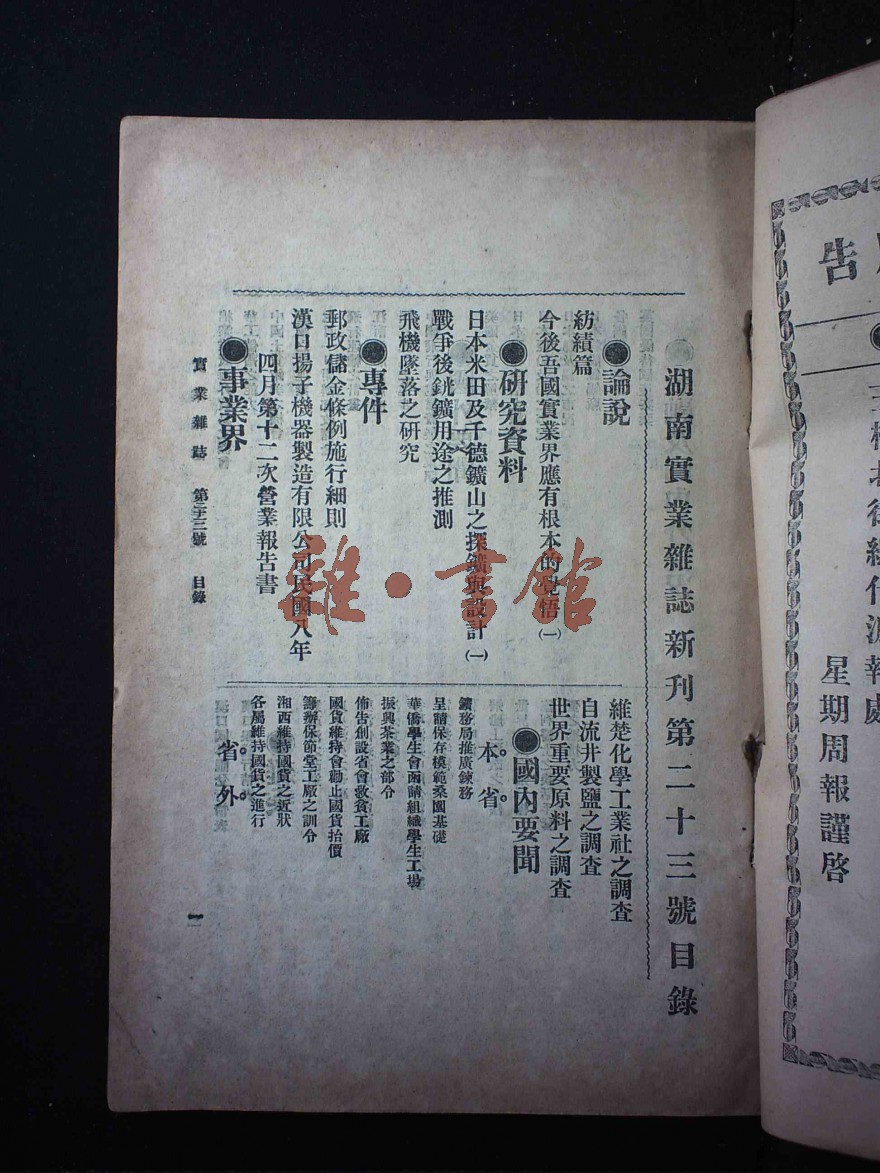 湖南實業雜誌新刊第二十三號目錄
●論說
紡績篇
今後吾國實業界應有根本的覺悟(一)
●研究資料
日本米田及千德鑛山之探鑛與設計(一)
戰爭後銧鑛用途之推測
飛機墜落之研究
●專件
郵政儲金條例施行細則
漢口揚子機器製造有限公司民國八年
四月第十二次營業報告書
●事業界
維楚化學工業社之調査
自流井製鹽之調査
世界重要原料之調査
●國內要聞
本省
鑛務局推廣鍊務
呈請保存模範桑園基礎
華僑學生會函請組織學生工塲
振興茶業之部令
佈告創設省會救貧工廠
國貨維持會勸止國貨抬價
籌辦保節堂工廠之訓令
湘西維持國貨之近狀
各屬維持國貨之進行
省外
實業雜誌 第二十三號 目錄
一
雜·書館
告
星期周報謹啓